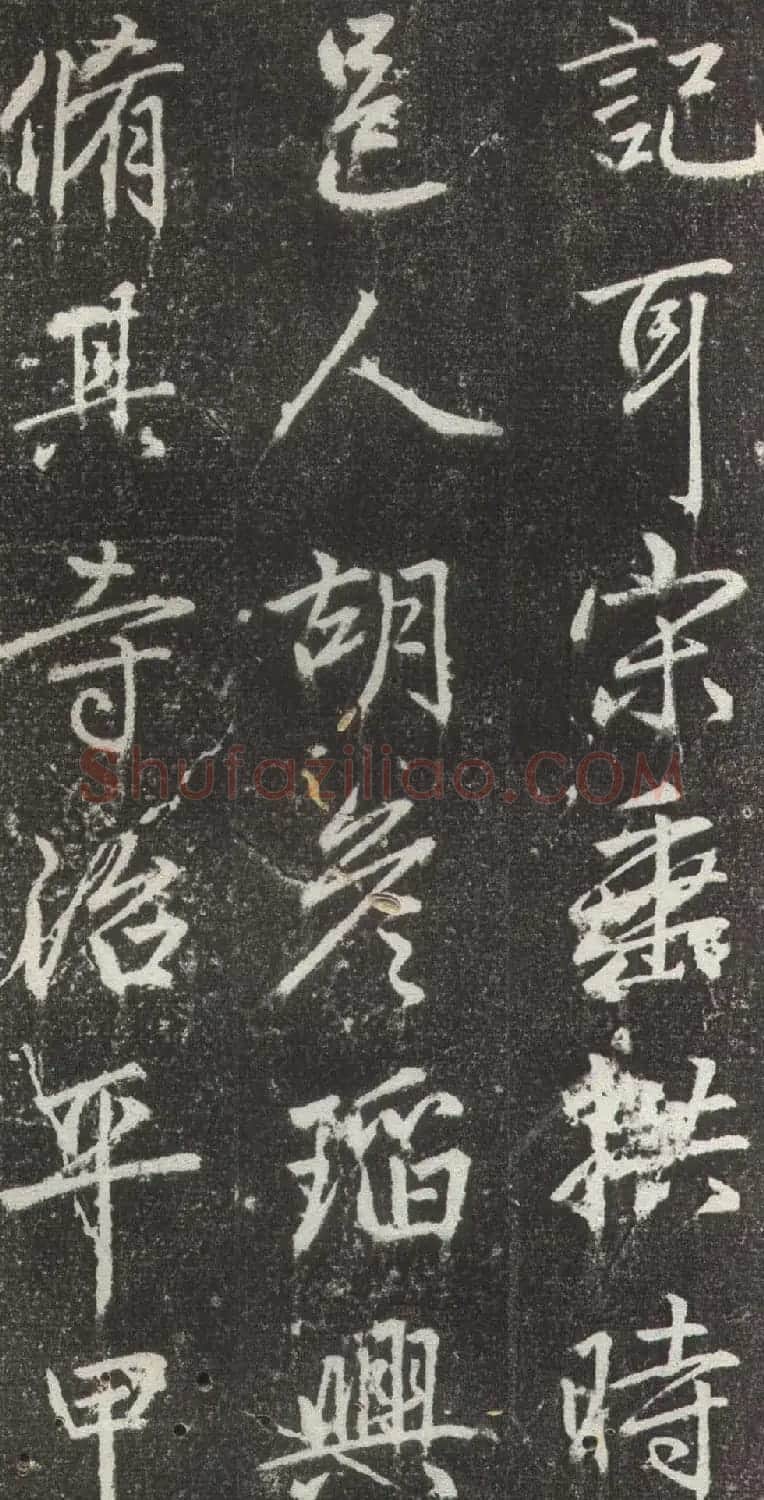 記耳宋垂拱時
邑人胡參瑫興
脩其寺治平甲
Shufaziliao.COM